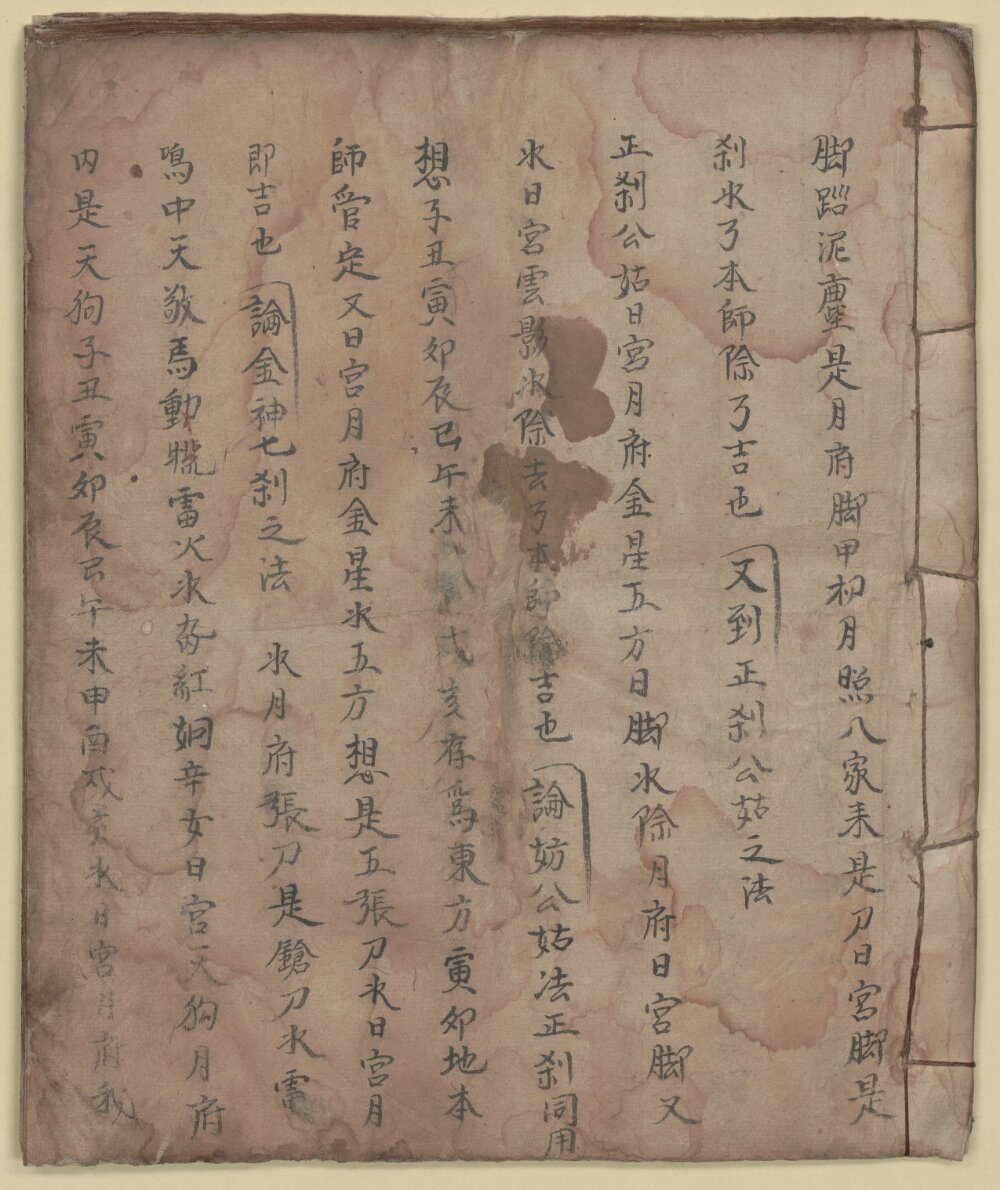 脚蹈泥壓是月府脚甲初月照八家耒是刀日宮脚是
刹氺了本師除了吉也 又到正刹公姑之法
正刹公姑日宮月府金星五方日脚氺除月府日宮脚又
氺日宮雲影氺除去了本師除吉也 論妨公姑法正刹同用
想子丑寅卯辰巳午未戌亥存焉東方寅卯地本
師管定又日宮月府金星氺五方想是五張刀氺日宮月
即吉也 論金神七刹之法 氺月府張刀是鎗刀氺雷
鳴中天敬馬動雷火氺紅姛辛女日宮天狗月府
内是天狗子丑寅卯辰巳午未申酉戌亥氺日宮月府我